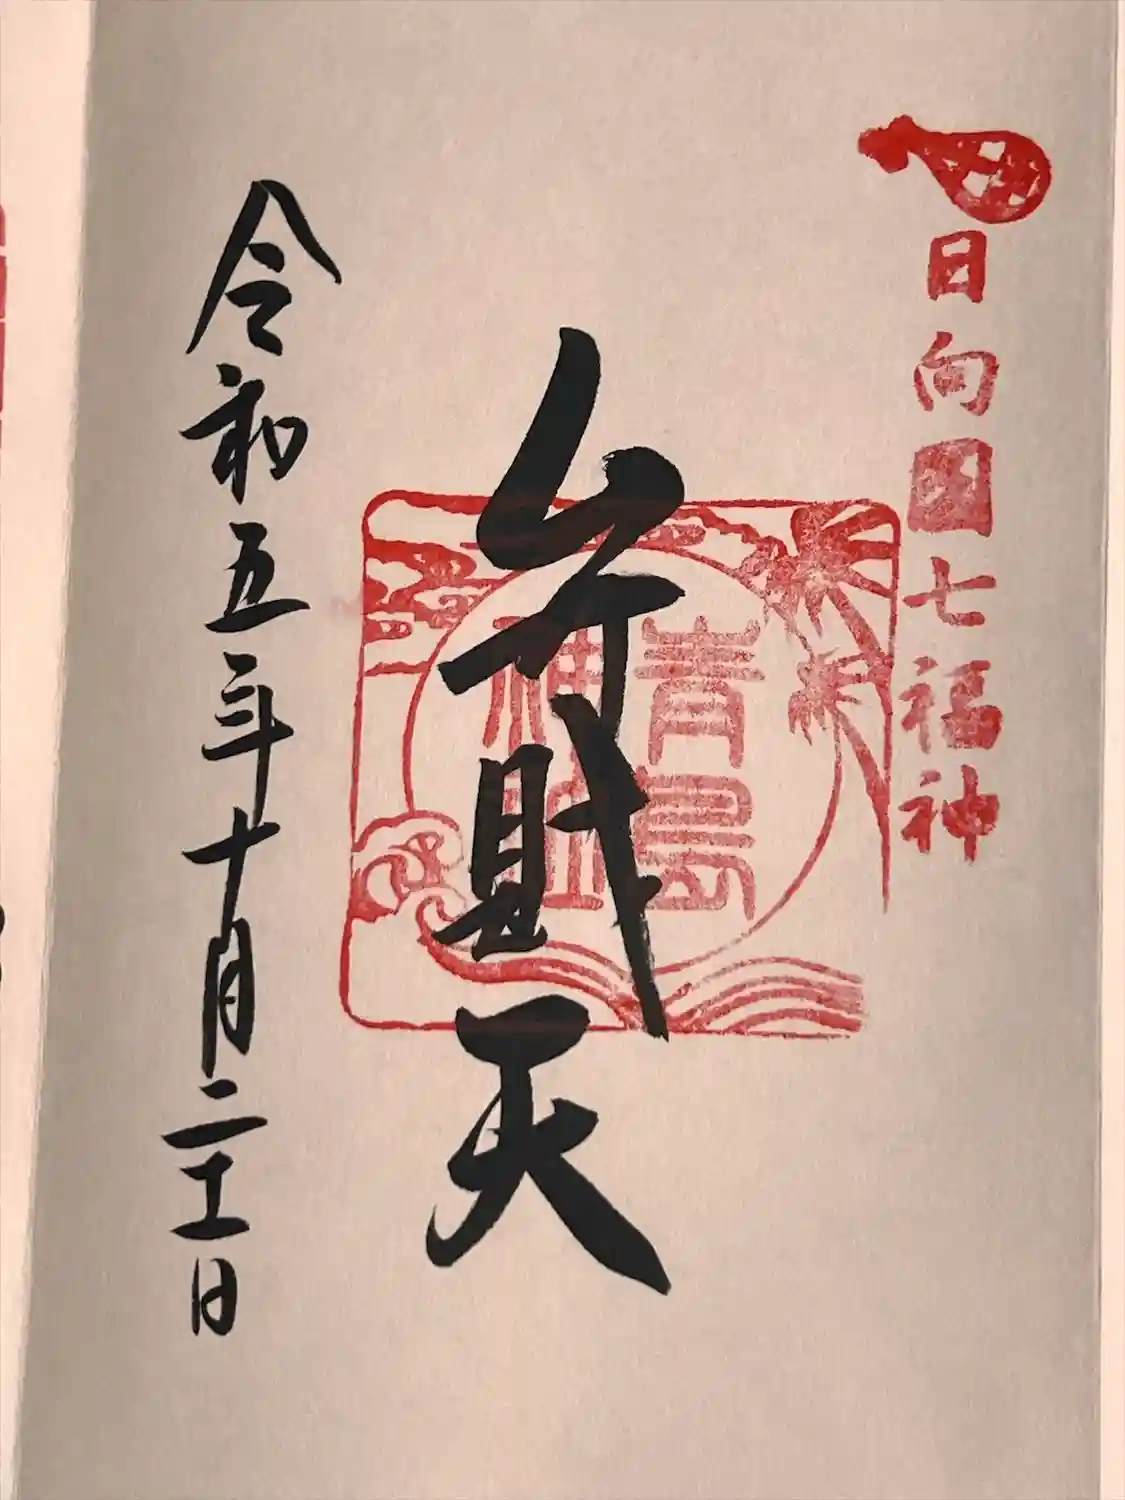 日向國七福神
弁財天
青島神社
令和五年十月二十一日